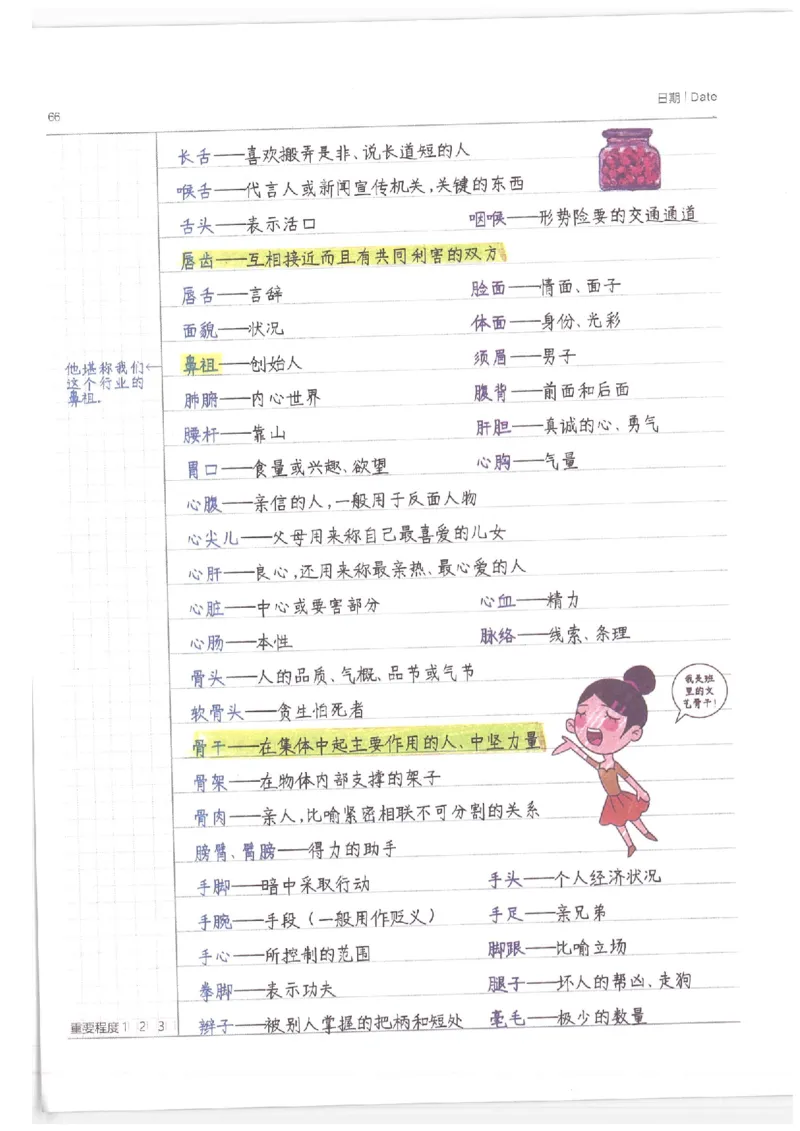 66
日期 | Date
长舌——喜欢搬弄是非、说长道短的人
喉舌——代言人或新闻宣传机关,关键的东西
舌头——表示活口 咽喉——形势险要的交通通道
唇齿——互相接近而且有共同利害的双方
唇舌——言辞 脸面——情面、面子
面貌——状况 体面——身份、光彩
鼻祖——创始人 须眉——男子
他堪称我们←
这个行业的
鼻祖.
肺腑——内心世界 腹背——前面和后面
腰杆——靠山 肝胆——真诚的心、勇气
胃口——食量或兴趣、欲望 心胸——气量
心腹——亲信的人,一般用于反面人物
心尖儿——父母用来称自己最喜爱的儿女
心肝——良心,还用来称最亲热、最心爱的人
心脏——中心或要害部分 心血——精力
心肠——本性 脉络——线索、条理
骨头——人的品质、气概、品节或气节
我是班
里的文
艺骨干!
软骨头——贪生怕死者
骨干——在集体中起主要作用的人、中坚力量
骨架——在物体内部支撑的架子
骨肉——亲人,比喻紧密相联不可分割的关系
膀臂、臂膀——得力的助手
手脚——暗中采取行动 手头——个人经济状况
手腕——手段(一般用作贬义) 手足——亲兄弟
手心——所控制的范围 脚跟——比喻立场
拳脚——表示功夫 腿子——坏人的帮凶、走狗
辫子——被别人掌握的把柄和短处 毫毛——极少的数量
重要程度 1 2 3